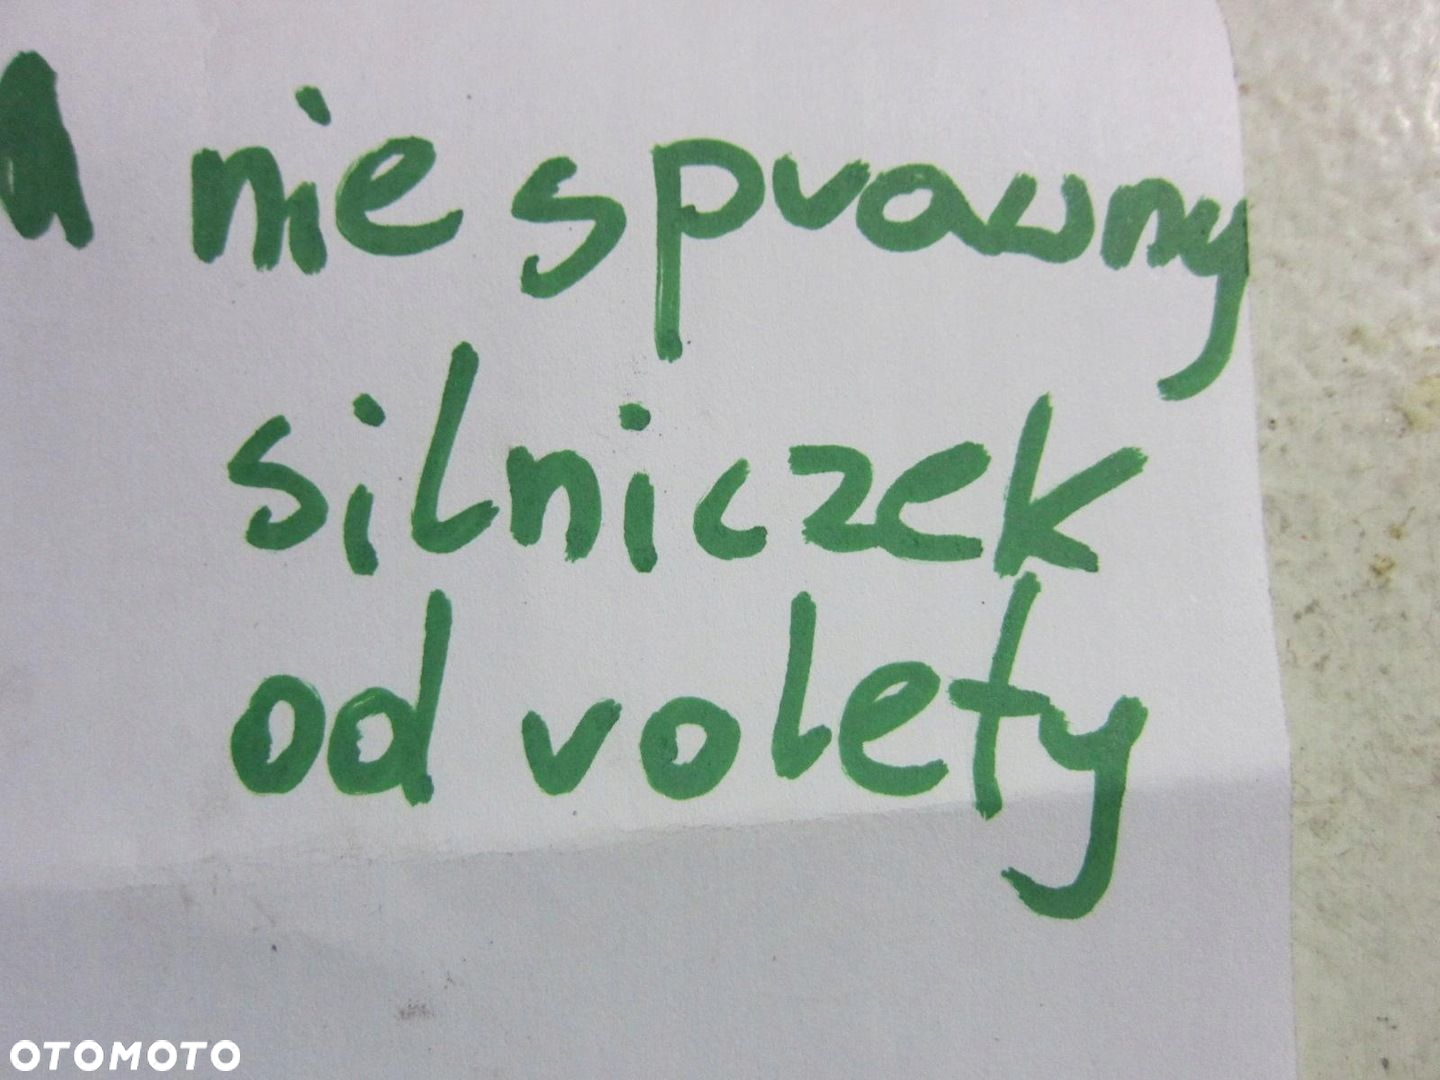 nie sprawny
silniczek
od volety
OTOMOTO